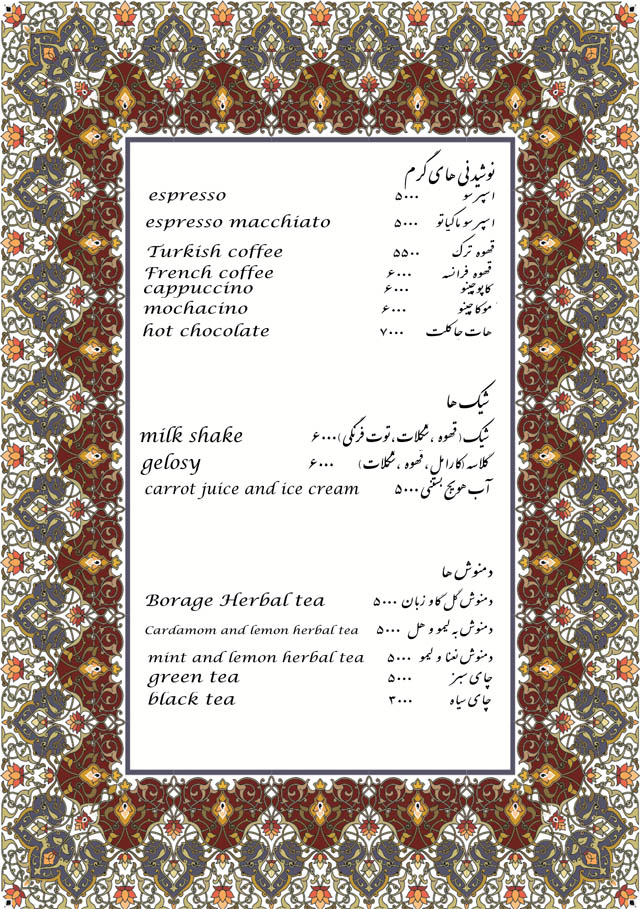 نوشیدنی های گرم
espresso ۵۰۰۰ اسپرسو
espresso macchiato ۵۰۰۰ اسپرسو ماکیاتو
Turkish coffee ۵۵۰۰ قهوه ترک
French coffee ۶۰۰۰ قهوه فرانسه
cappuccino ۶۰۰۰ کاپوچینو
mochacino ۶۰۰۰ موکاچینو
hot chocolate ۷۰۰۰ هات چاکلت
شیک ها
milk shake ۶۰۰۰ شیک (قهوه ، شکلات، توت فرنگی)
gelosy ۶۰۰۰ گلاسه (کارامل، قهوه ، شکلات)
carrot juice and ice cream ۵۰۰۰ آب هویج بستنی
دمنوش ها
Borage Herbal tea ۵۰۰۰ دمنوش گل گاو زبان
Cardamom and lemon herbal tea ۵۰۰۰ دمنوش به لیمو و هل
mint and lemon herbal tea ۵۰۰۰ دمنوش نعنا و لیمو
green tea ۵۰۰۰ چای سبز
black tea ۳۰۰۰ چای سیاه